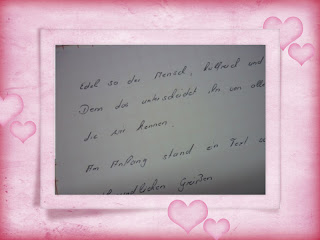 Edel so der Mensch, hilfreich und
Denn das unterscheidet ihn von alle
die wir kennen.
Am Anfang stand ein Text
Grüßen